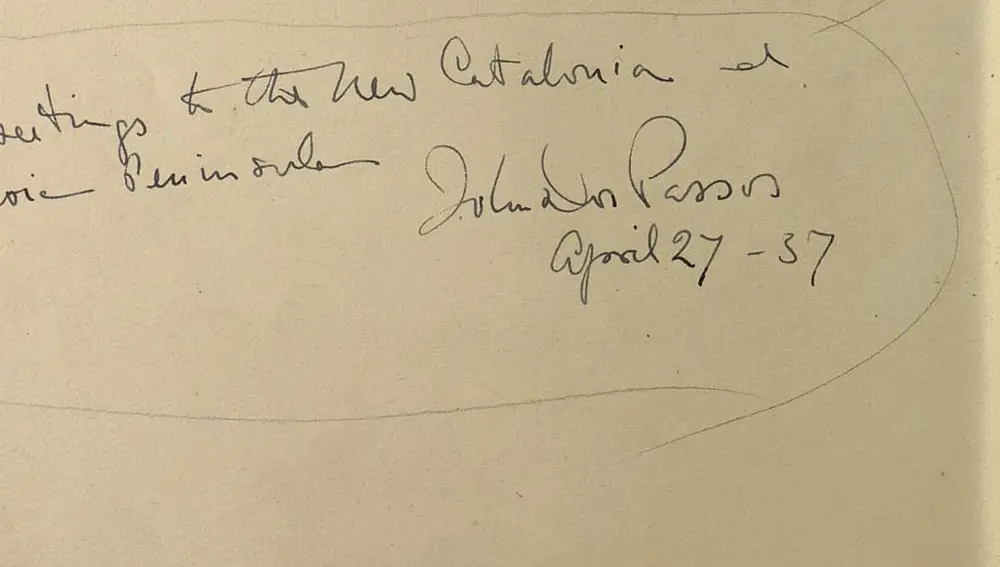 eetings to the New Catalonia
Peninsula
John Dos Passos
April 27 - 37